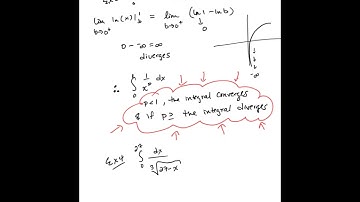 lim ln(x)|₆¹ = lim (ln 1 - ln b)
b→0⁺ b→0⁺ ↓
0
0 - -∞ = ∞
diverges
-∞
∴ ∫₀ 1/xᵖ dx
p<1, the integral converges
& if p≥ the integral diverges
Ex4 ∫₀²⁷ dx/∛(27-x)